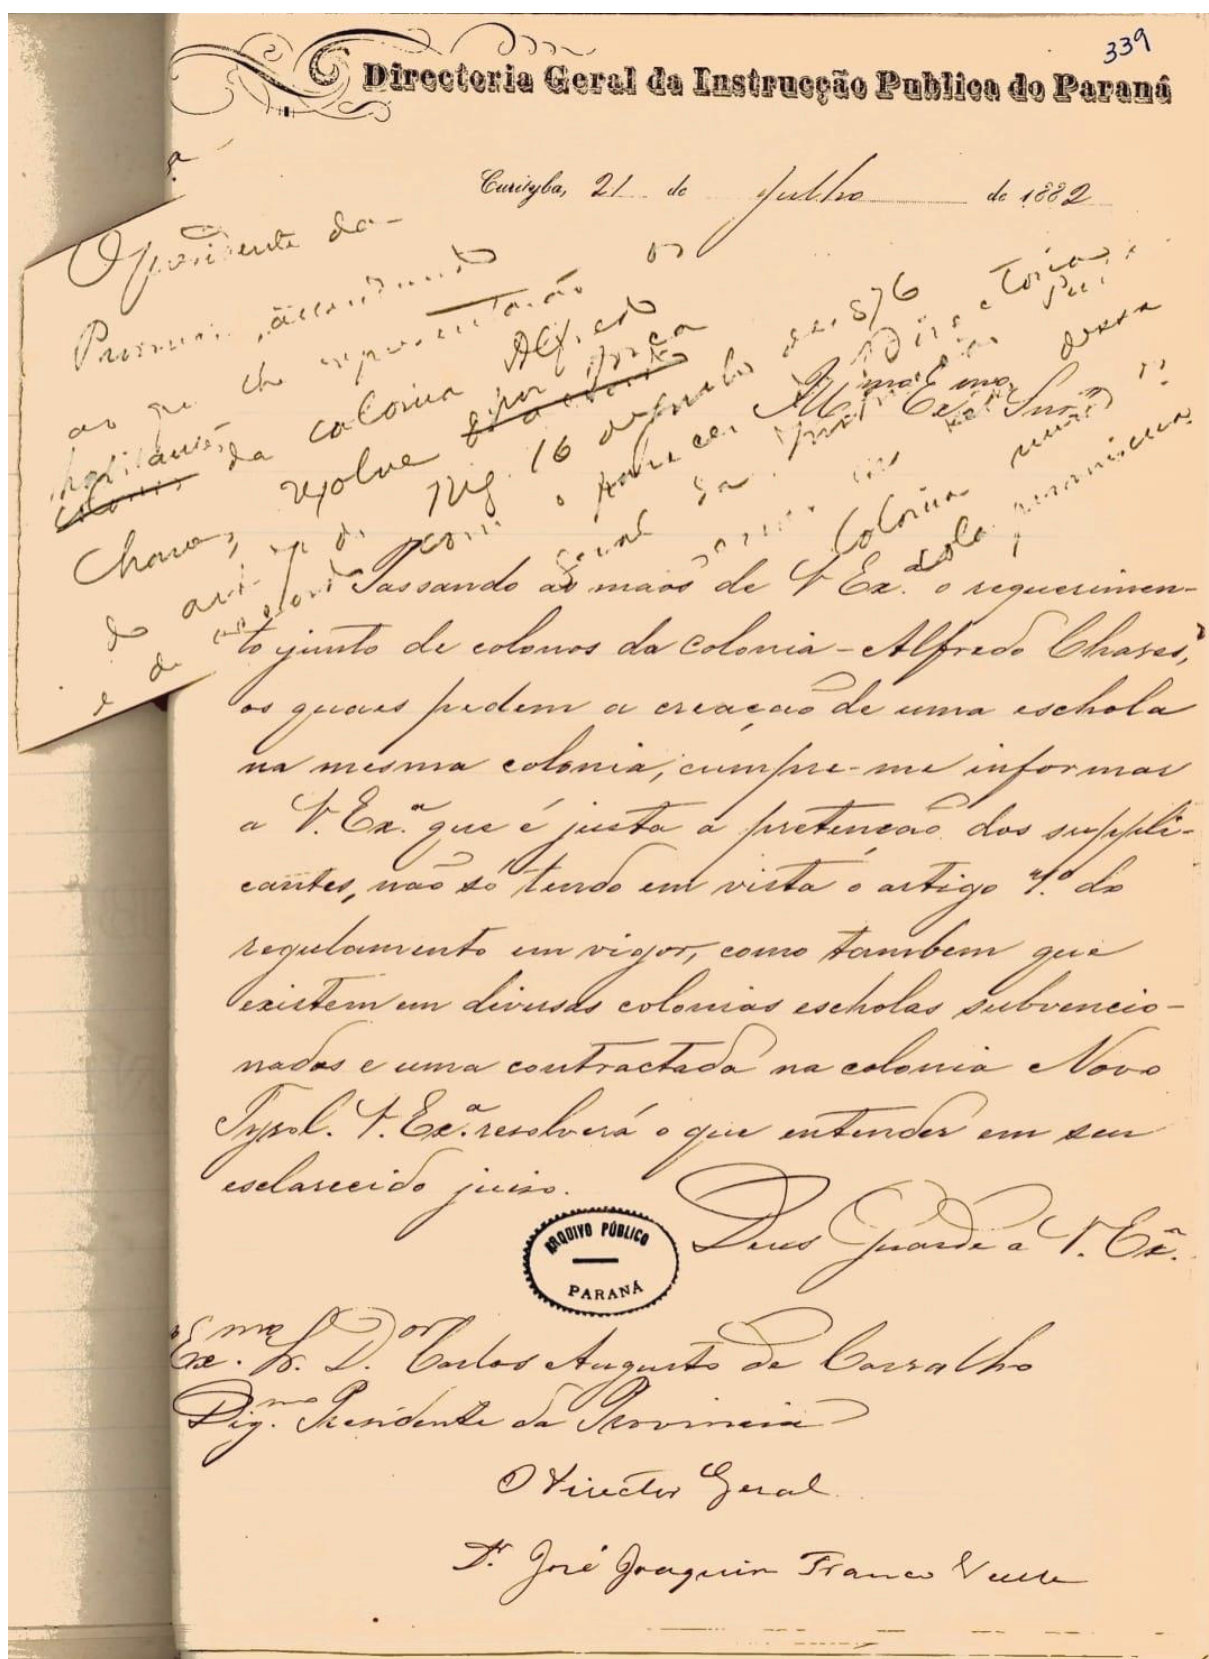 339
Directoria Geral da Instrucção Publica do Paraná
Curityba, 21 de Julho de 1882
O Presidente da
Provincia, attendendo
ao que representarão os
habitantes
colonos da colonia Alfredo
Chaves, resolve por força
do art. do Reg. 16 de 1876
e de com o parecer da Directoria
Geral da
colonia
Illmo Exmo Snr.
Passando as mãos de V Ex.ª o requerimen-
to junto de colonos da colonia - Alfredo Chaves,
os quaes pedem a creação de uma eschola
na mesma colonia, cumpre-me informar
a V. Ex.ª que é justa a pretenção dos suppli-
cantes, não só tendo em vista o artigo do
regulamento em vigor, como tambem que
existem em diversas colonias escholas subvencio-
nadas e uma contractada na colonia Novo
Tyrol. V. Ex.ª resolverá o que entender em seu
esclarecido juizo.
Deus Guarde a V. Ex.ª
ARQUIVO PÚBLICO
PARANÁ
Exmo Sr. Dor Carlos Augusto de Carvalho
Digmo Presidente da Provincia
O Director Geral
Dr. José Joaquim Franco Valle